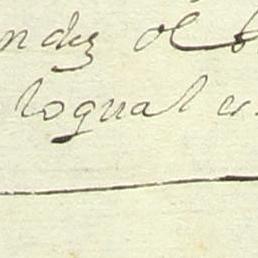 ndez el
loqual es